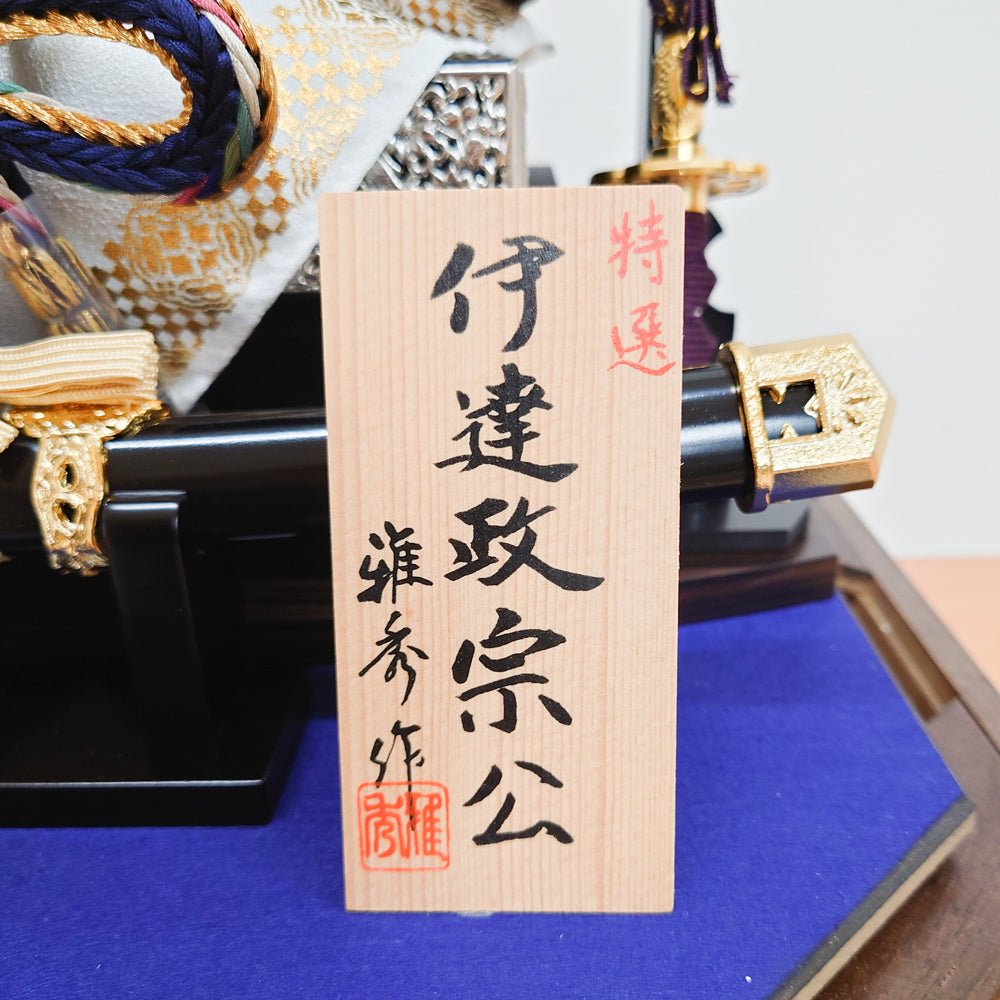 特選
伊達政宗公
雅秀作
雅秀